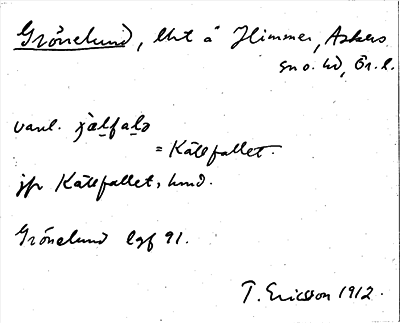 Grönelund, lht å Himmer, Askers
sn o. hd, Ör. l.
vanl. 
= Källfallet.
jfr Källfallet, hmd.
Grönelund lgf 91.
T. Ericsson 1912.